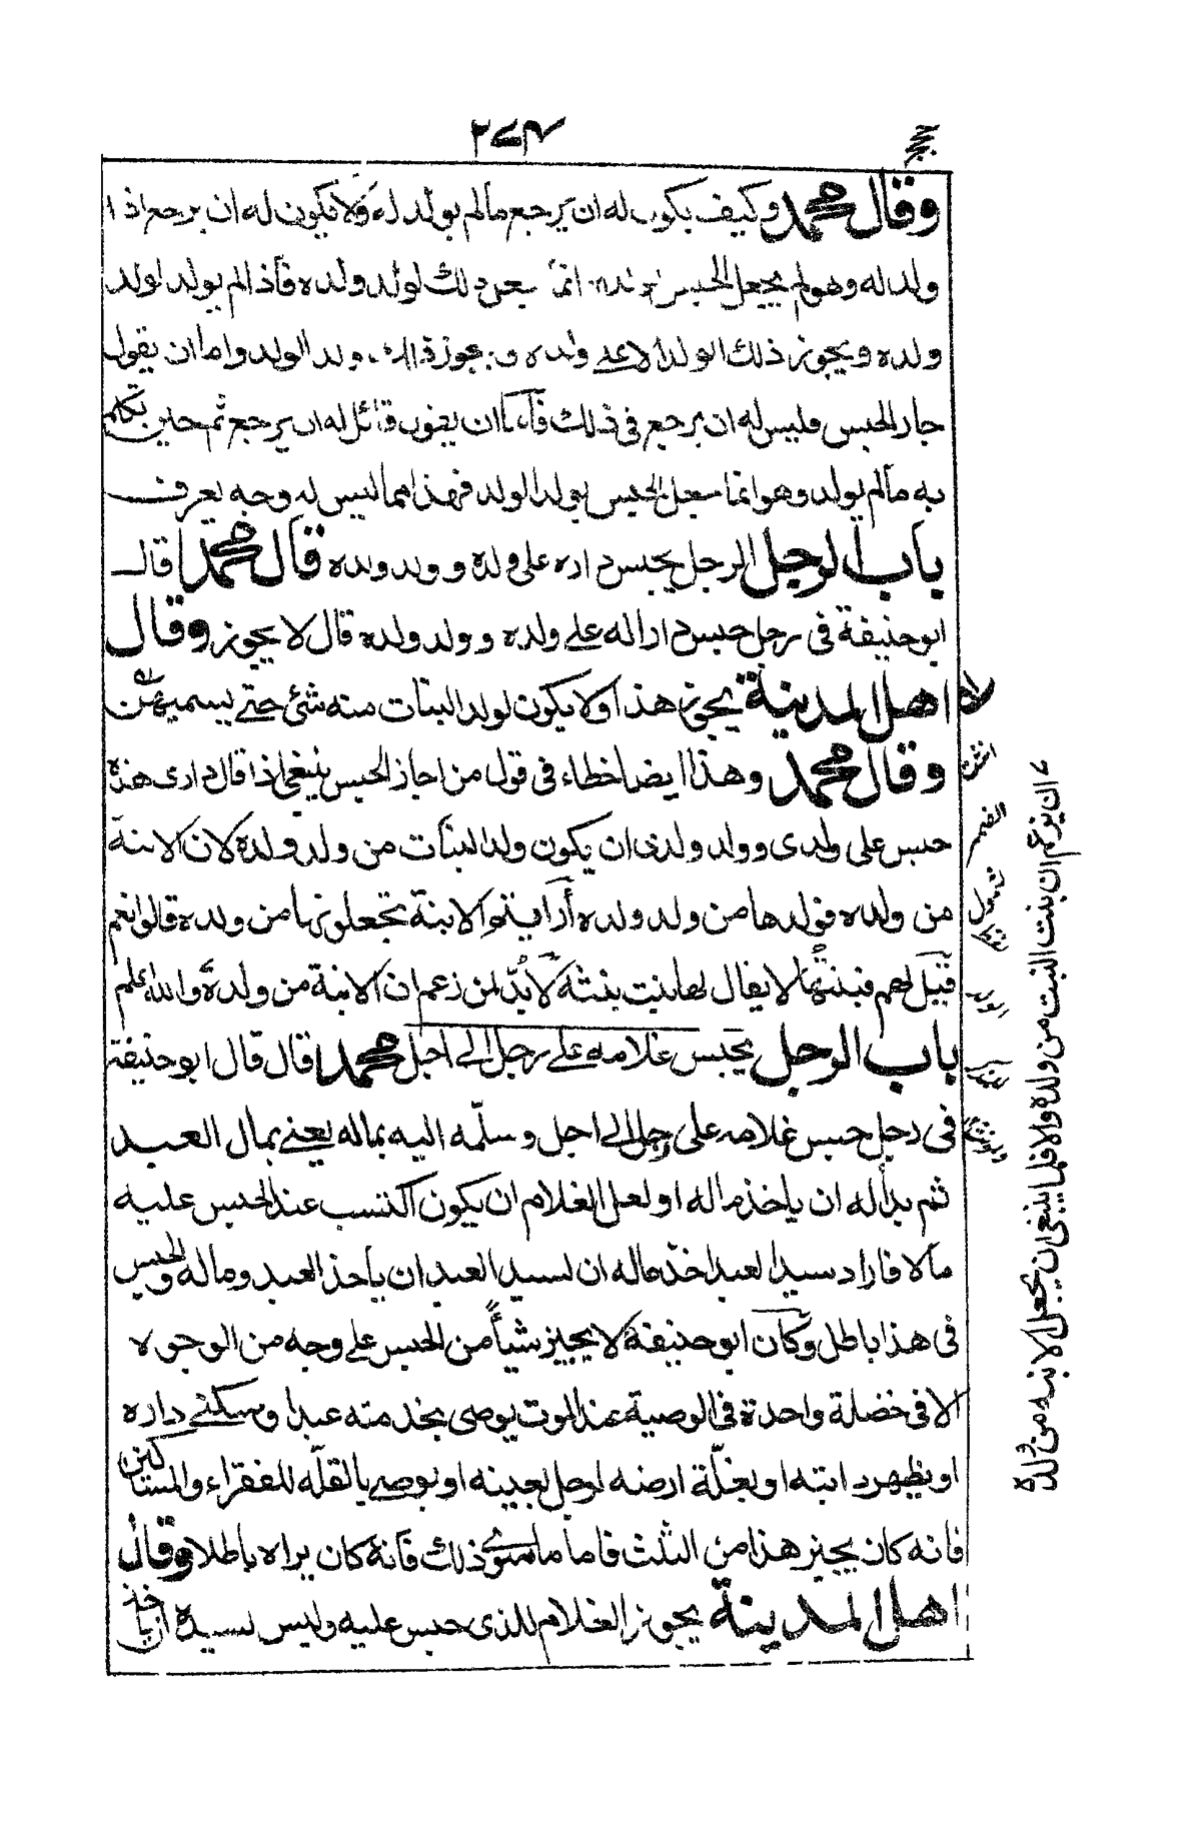 وقال محمد وكيف يكون له ان يرجع مالم يولد له ولا يكون له ان يرجع اذا
ولد له وهو لم يجعل الحبس انما ذلك لولد ولده فاذا لم يولد لولد
ولده ويجوز ذلك الولد ولده ولد الولد واما ان يقول
جاز الحبس فليس له ان يرجع في ذلك فاما ان يقول قائل له ان يرجع ثم حين تكلم
به مالم يولد وهو انما يجعل الحبس لولد الولد فهذا مما ليس له وجه يعرف
باب الرجل الرجل يحبس داره على ولده وولد ولده قال محمد قال
ابو حنيفة في رجل حبس دارا له على ولده وولد ولده قال لا يجوز وقال
اهل المدينة يجوز هذا ولا يكون لولد البنات منه شئ حتى يسميهن
وقال محمد وهذا ايضا خطاء في قول من اجاز الحبس ينبغي اذا قال داري هذه
حبس على ولدي وولد ولدي ان يكون ولد البنات من ولد ولده لان الابنة
من ولده فولدها من ولد ولده أرايتم الابنة تجعلونها من ولده قالوا نعم
قيل لهم فبنتها لا يقال لها بنت بنته لا بد لمن زعم ان الابنة من ولده والله اعلم
باب الرجل يحبس غلامه على رجل الى اجل محمد قال قال ابو حنيفة
في رجل حبس غلامه على رجل الى اجل وسلمه اليه بماله يعني بمال العبد
ثم بدأ له ان ياخذ ماله او لعل الغلام ان يكون اكتسب عند الحبس عليه
مالا فاراد سيد العبد اخذ ماله ان لسيد العبد ان ياخذ العبد وماله والحبس
في هذا باطل وكان ابو حنيفة لا يجيز شيأ من الحبس على وجه من الوجوه
الا في خصلة واحدة في الوصية عند الموت يوصي بخدمته عبدا وسكنى داره
او بظهر دابته او بغلة ارضه لرجل بعينه او يوصي بالغلة للفقراء والمساكين
فانه كان يجيز هذا من الثلث فاما ما سوى ذلك فانه كان يراه باطلا وقال
اهل المدينة يجوز الغلام للذي حبس عليه وليس لسيده ان ياخذ
ان يزعم ان بنت البنت من ولده والا فلما ينبغي ان يجعل الابنة من ولده